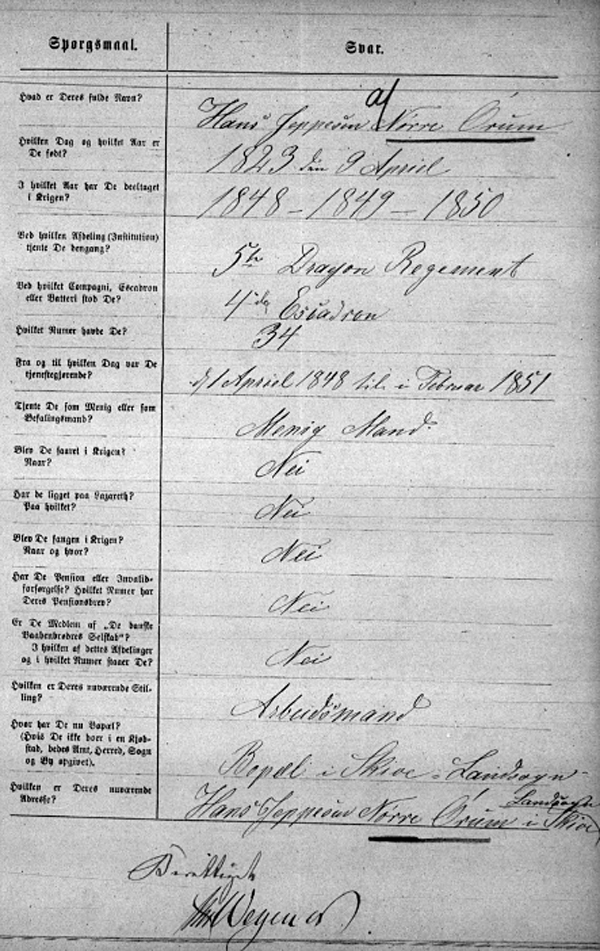 Spørgsmaal. Svar.
Hvad er Deres fulde Navn? Hans Jeppesen af Nørre Ørum
Hvilken Dag og hvilket Aar er
De født? 1823 den 9 April
I hvilket Aar har De deeltaget
i Krigen? 1848 - 1849 - 1850
Ved hvilken Afdeling (Institution)
tjente De dengang? 5te Dragon Regement
Ved hvilket Compagni, Escadron
eller Batteri stod De? 4de Escadron
Hvilket Numer havde De? 34
Fra og til hvilken Dag var De
tjenstegjørende? 1 April 1848 til i Februar 1851
Tjente De som Menig eller som
Befalingsmand? Menig Mand.
Blev De saaret i Krigen?
Naar? Nei
Har de ligget paa Lazareth?
Paa hvilket? Nei
Blev De fangen i Krigen?
Naar og hvor? Nei
Har De Pension eller Invalid-
forsørgelse? Hvilket Numer har
Deres Pensionsbrev? Nei
Er De Medlem af „De danske
Vaabenbrødres Selskab“?
I hvilken af dettes Afdelinger
og i hvilket Numer staaer De? Nei
Hvilken er Deres nuværende Stil-
ling? Arbeidsmand
Hvor har De nu Bopæl?
(Hvis De ikke boer i en Kjøb-
stad, bedes Amt, Herred, Sogn
og By opgivet). Bopæl i Skive Landsogn
Hvilken er Deres nuværende
Adresse? Hans Jeppesen Nørre Ørum i Skive Landsogn
Berettiget
Wegener